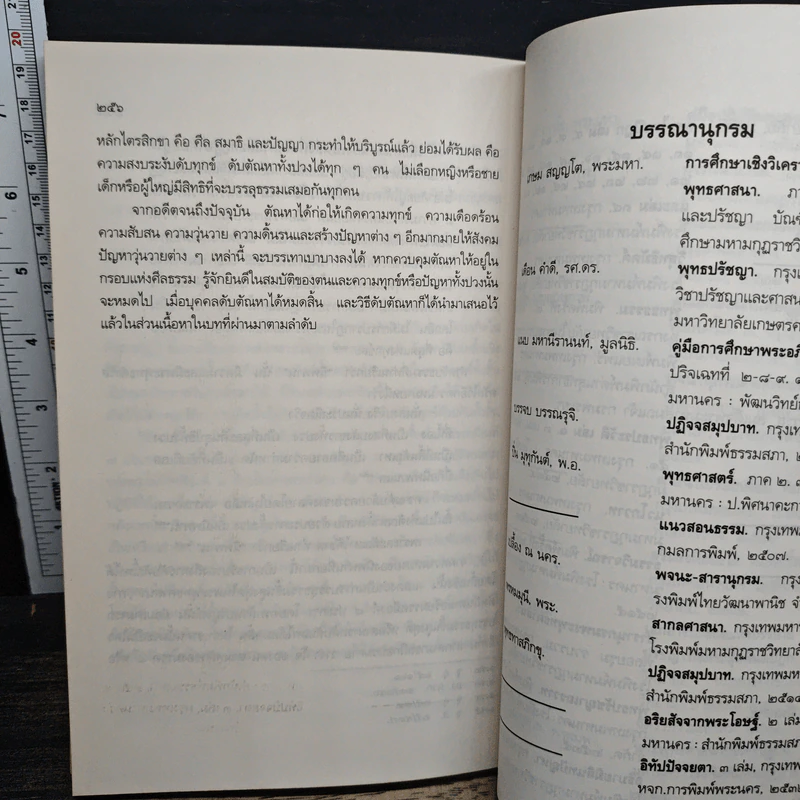 ๒๕๖
หลักไตรสิกขา คือ ศีล สมาธิ และปัญญา กระทำให้บริบูรณ์แล้ว ย่อมได้รับผล คือ
ความสงบระงับดับทุกข์ ดับตัณหาทั้งปวงได้ทุก ๆ คน ไม่เลือกหญิงหรือชาย
เด็กหรือผู้ใหญ่มีสิทธิที่จะบรรลุธรรมเสมอกันทุกคน
จากอดีตจนถึงปัจจุบัน ตัณหาได้ก่อให้เกิดความทุกข์ ความเดือดร้อน
ความสับสน ความวุ่นวาย ความดิ้นรนและสร้างปัญหาต่าง ๆ อีกมากมายให้สังคม
ปัญหาวุ่นวายต่าง ๆ เหล่านี้ จะบรรเทาเบาบางลงได้ หากควบคุมตัณหาให้อยู่ใน
กรอบแห่งศีลธรรม รู้จักยินดีในสมบัติของตนและความทุกข์หรือปัญหาทั้งปวงนั้น
จะหมดไป เมื่อบุคคลดับตัณหาได้หมดสิ้น และวิธีดับตัณหาก็ได้นำมาเสนอไว้
แล้วในส่วนเนื้อหาในบทที่ผ่านมาตามลำดับ
บรรณานุกรม
สญฺญโต, พระมหา. การศึกษาเชิงวิเครา
พุทธศาสนา.
และปรัชญา
ศึกษามหามกุฏราชวิ
คำดี, รศ.ดร. พุทธปรัชญา. กรุงเ
วิชาปรัชญาและศาสน
มหาวิทยาลัยเกษตรศ
มหานีรานนท์, มูลนิธิ. คู่มือการศึกษาพระอภิ
ปริจเฉทที่ ๒-๘-๙.
มหานคร : พัฒนวิทย์
บรรจบ บรรณรุจิ. ปฏิจจสมุปบาท. กรุงเท
สำนักพิมพ์ธรรมสภา,
มุทุกันต์, พ.อ. พุทธศาสตร์. ภาค ๒.
มหานคร : ป.พิศนาคะกา
แนวสอนธรรม. กรุงเทพม
กมลการพิมพ์, ๒๕๐๗.
ณ นคร. พจนะ-สารานุกรม. กรุง
รงพิมพ์ไทยวัฒนาพานิช
พระ. สากลศาสนา. กรุงเทพมหาน
โรงพิมพ์มหามกุฏราชวิทยาลั
ปฏิจจสมุปบาท. กรุงเทพมห
สำนักพิมพ์ธรรมสภา,
อริยสัจจากพระโอษฐ์. ๒ เล่ม
มหานคร : สำนักพิมพ์ธรรมสภ
อิทัปปัจจยตา. ๓ เล่ม, กรุงเท
หจก.การพิมพ์พระนคร,